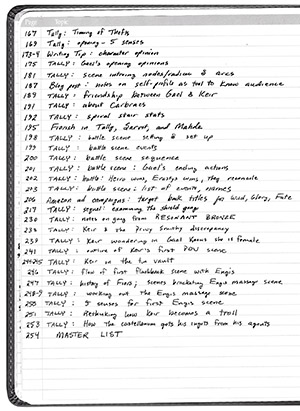 Page Topic
167 Tally: Timing of Thefts
169 Tally: opening - 5 senses
173-4 Writing Tip: character opinion
175 TALLY: Gael's opening opinions
181 TALLY: scene entering nodes/radieux & arcs
187 Blog post: notes on self-profile as tool to know audience
189 TALLY: friendship between Gael & Keir
191 TALLY: about Carbraes
192 TALLY: spiral stair stats
195 French in Tally, Sarvet, and Mahdi
198 TALLY: battle scene setting & set up
199 TALLY: battle scene events
200 TALLY: battle scene sequence
201 TALLY: battle scene: Gael's ending actions
202 TALLY: battle: Heiroc wins, Erastys wins, they reconcile
203 TALLY: battle scene: list of events, names
206 Amazon ad campaigns: target book titles for Wild, Glory, Fate
217 TALLY: sequel: examining the shield gong
230 TALLY: notes on gong from RESONANT BRONZE
233 TALLY: Keir & the Privy Smithy discrepancy
239 TALLY: Keir wondering if Gael knows she is female
241 TALLY: nature of Keir's first POV scene
244-245 TALLY: Keir in the tin vault
246 TALLY: flow of first flashback scene with Engis
247 TALLY: history of Fiors; scenes bracketing Engis massage scene
248-9 TALLY: working out the Engis massage scene
250 TALLY: 5 senses for first Engis scene
251 TALLY: Rethinking how Keir becomes a troll
253 TALLY: How the castellanum gets his inputs from his agents
254 MASTER LIST